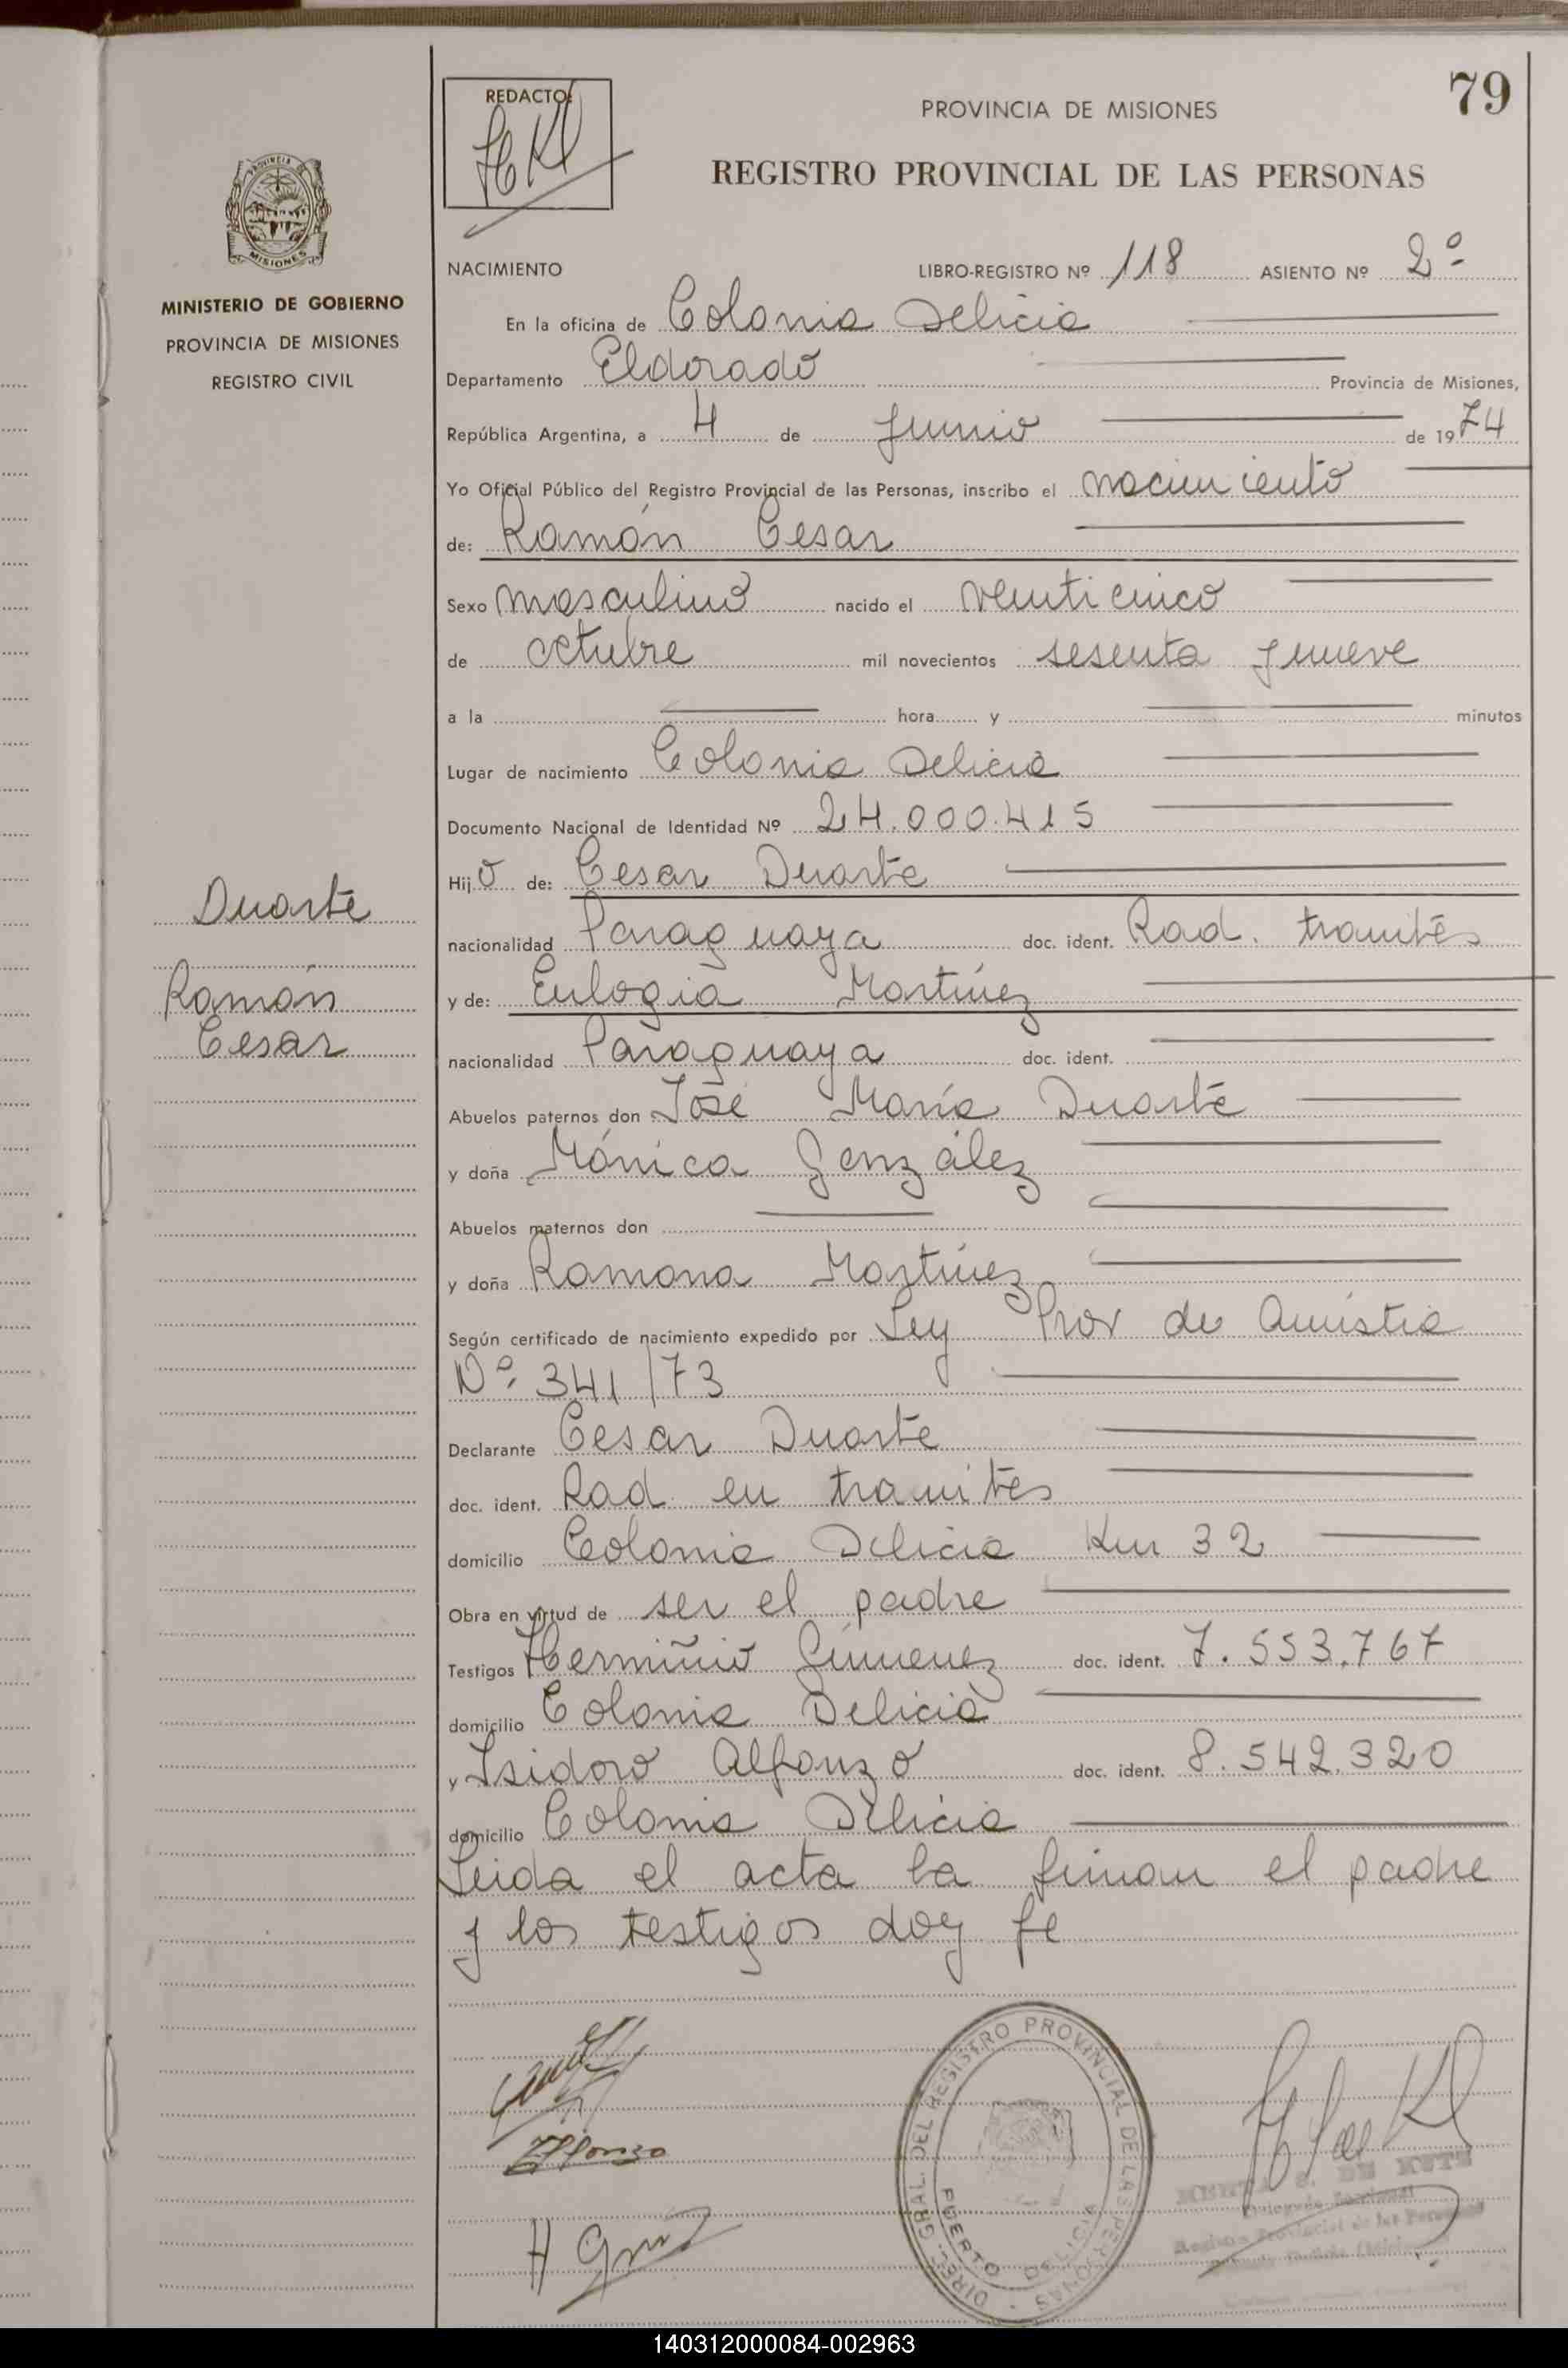 79
REDACTO:
PROVINCIA DE MISIONES
REGISTRO PROVINCIAL DE LAS PERSONAS
PROVINCIA
MISIONES
MINISTERIO DE GOBIERNO
PROVINCIA DE MISIONES
REGISTRO CIVIL
NACIMIENTO LIBRO-REGISTRO Nº 118 ASIENTO Nº 2º
En la oficina de Colonia Delicia
Departamento Eldorado Provincia de Misiones,
República Argentina, a 4 de Junio de 1974
Yo Oficial Público del Registro Provincial de las Personas, inscribo el nacimiento
de: Ramón Cesar
Sexo masculino nacido el veinticinco
de octubre mil novecientos sesenta y nueve
a la hora y minutos
Lugar de nacimiento Colonia Delicia
Documento Nacional de Identidad Nº 24.000.415
Hijo de: Cesar Duarte
nacionalidad Paraguaya doc. ident. Rad. tramites
y de: Eulogia Martínez
nacionalidad Paraguaya doc. ident.
Abuelos paternos don José María Duarte
y doña Mónica González
Abuelos maternos don
y doña Ramona Martínez
Según certificado de nacimiento expedido por Ley Prov de Amistia
Nº 341/73
Declarante Cesar Duarte
doc. ident. Rad. en tramites
domicilio Colonia Delicia Km 32
Obra en virtud de ser el padre
Testigos Herminio Gimenez doc. ident. 7.553.767
domicilio Colonia Delicia
y Isidoro Alfonzo doc. ident. 8.542.320
domicilio Colonia Delicia
Leida el acta la firman el padre
y los testigos doy fe
Duarte
Ramón
Cesar
Alfonzo
DIREC. GRAL. DEL REGISTRO PROVINCIAL DE LAS PERSONAS
PUERTO DELICIA
Registro Provincial de las Personas
140312000084-002963